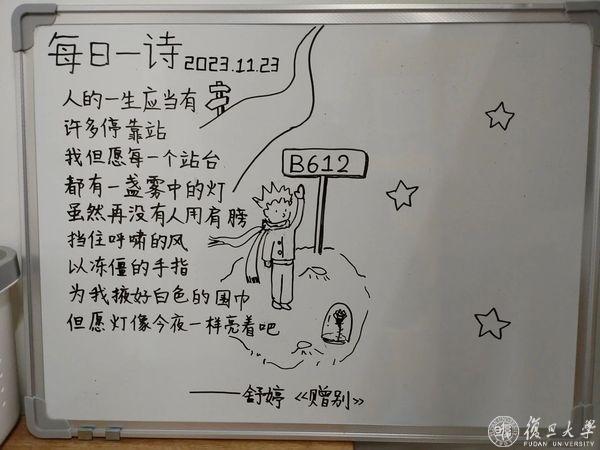 每日一诗 2023.11.23
人的一生应当有
许多停靠站
我但愿每一个站台
都有一盏雾中的灯
虽然再没有人用肩膀
挡住呼啸的风
以冻僵的手指
为我掖好白色的围巾
但愿灯像今夜一样亮着吧
——舒婷《赠别》
B612
復旦大學
FUDAN UNIVERSITY